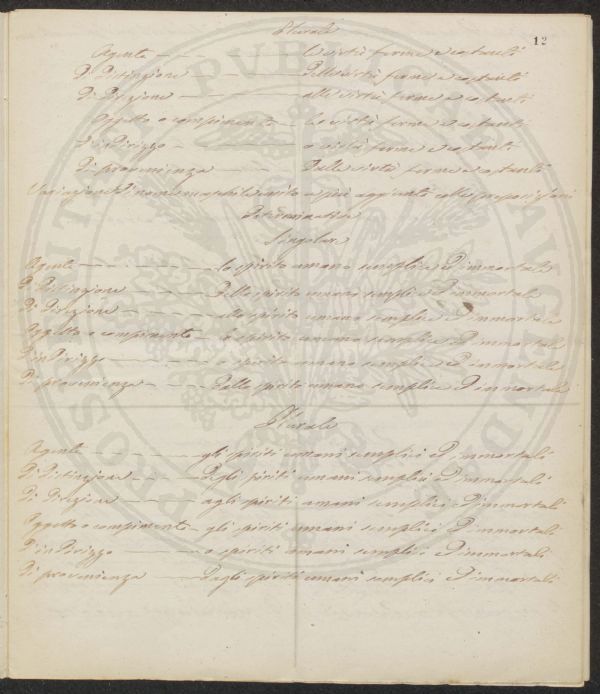 12
Plurale
Agente — — le virtù ferme e costanti
Di Distinzione — — Delle virtù ferme e costanti
Di Direzione — — alle virtù ferme e costanti
Oggetto o compimento — le virtù ferme e costanti
D'indirizzo — — o virtù ferme e costanti
Di provenienza — — Dalle virtù ferme e costanti
Variazione Di nome maschile unito a più aggiunti colle preposizioni
Determinative
Singolare
Agente — — — Lo spirito umano semplice ed immortale
Di Distinzione — — — Dello spirito umano semplice ed immortale
Di Direzione — — — allo spirito umano semplice ed immortale
Oggetto o compimento — lo spirito umano semplice ed immortale
D'indirizzo — — — o spirito umano semplice ed immortale
Di provenienza — — — Dallo spirito umano semplice ed immortale
Plurale
Agente — — — gli spiriti umani semplici ed immortali
Di Distinzione — — — Degli spiriti umani semplici ed immortali
Di Direzione — — — agli spiriti umani semplici ed immortali
Oggetto o compimento — gli spiriti umani semplici ed immortali
D'indirizzo — — — o spiriti umani semplici ed immortali
Di provenienza — — — Dagli spiriti umani semplici ed immortali